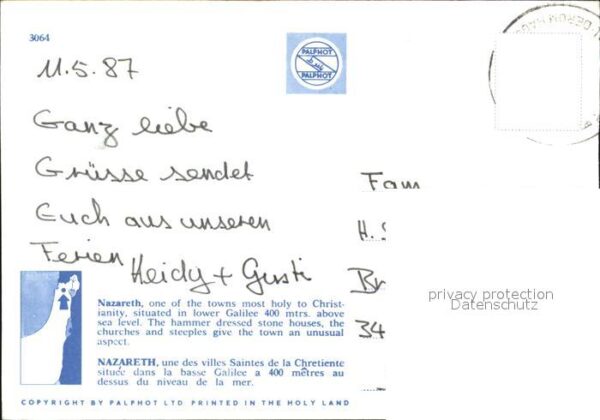 3064
PALPHOT
PALPHOT
11.5.87
Ganz liebe
Grüsse sendet
Euch aus unseren
Ferien Heidy + Gusti
Fam
H. S
Br
34
privacy protection
Datenschutz
Nazareth, one of the towns most holy to Christ-
ianity, situated in lower Galilee 400 mtrs. above
sea level. The hammer dressed stone houses, the
churches and steeples give the town an unusual
aspect.
NAZARETH, une des villes Saintes de la Chretiente
située dans la basse Galilee a 400 mêtres au
dessus du niveau de la mer.
COPYRIGHT BY PALPHOT LTD PRINTED IN THE HOLY LAND